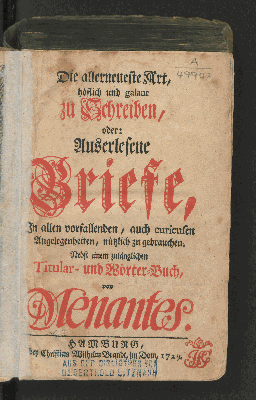 A
4990
Die allerneueste Art,
höflich und galant
zu Schreiben,
oder:
Auserlesene
Briefe,
In allen vorfallenden, auch curieusen
Angelegenheiten, nützlich zu gebrauchen.
Nebst einem zulänglichen
Titular- und Wörter-Buch,
von
Menantes.
HAMBURG,
bey Christian Wilhelm Brandt, im Dom, 1729.
AUS DER BIBLIOTHEK VON